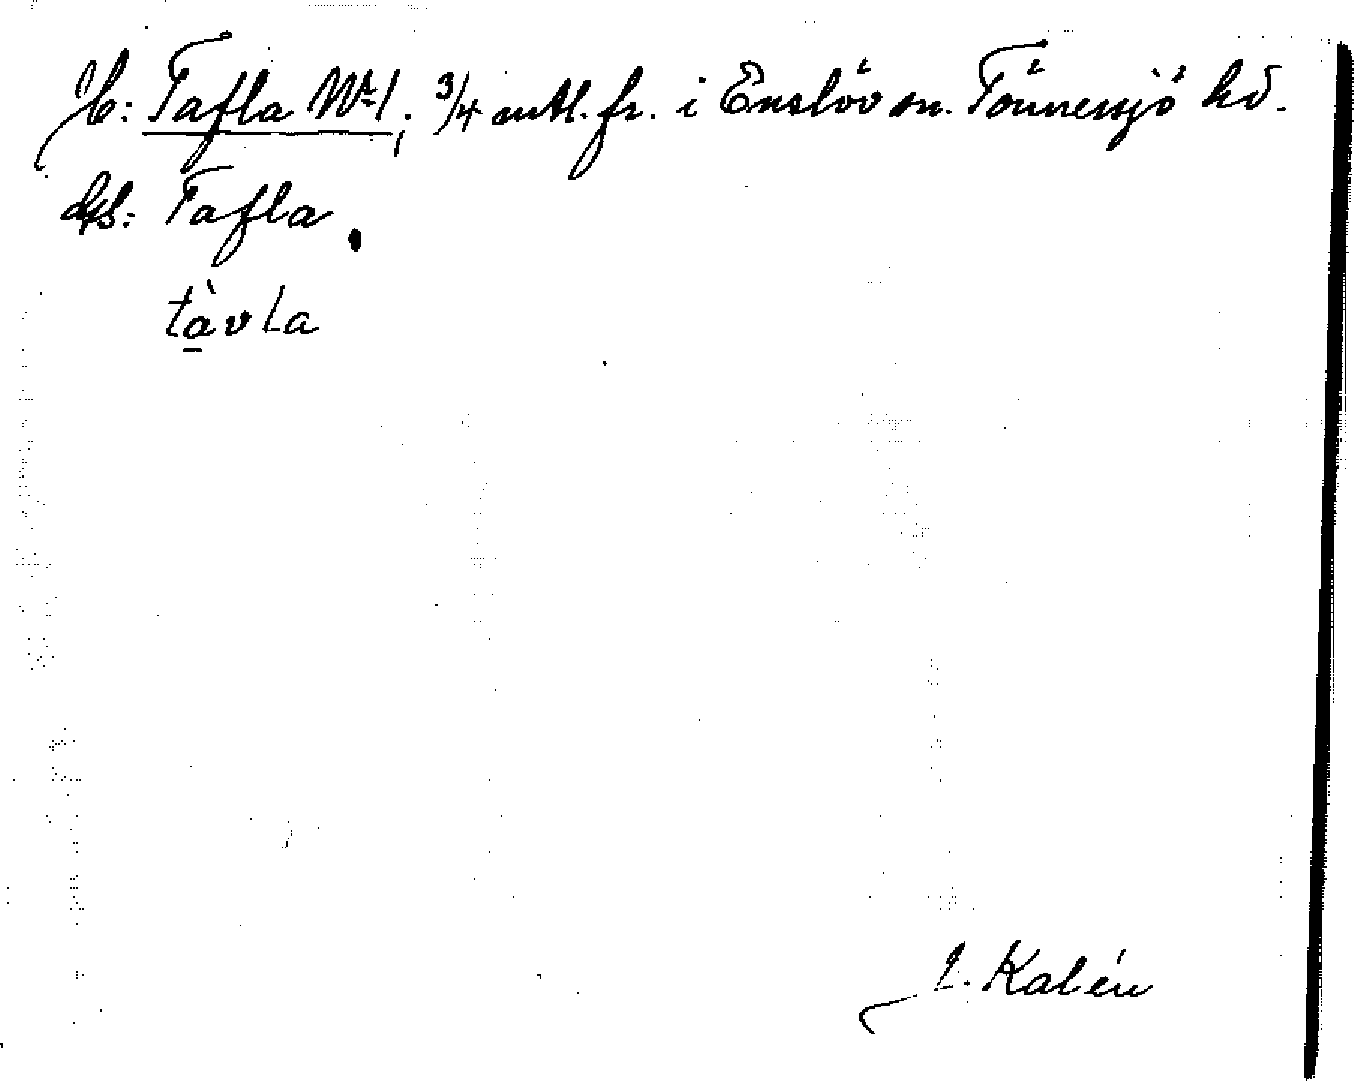 Jb: Tafla No 1; 3/4 mtl. fr. i Enslöv sn. Tönnersjö hd.
Gs: Tafla.
tàvla
J. Kalén